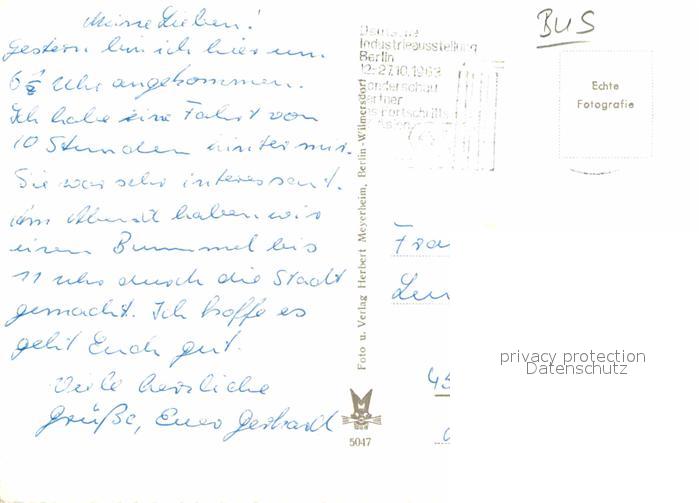 Meine Lieben!
Gestern bin ich hier um
6 1/2 Uhr angekommen.
Ich habe eine Fahrt von
10 Stunden hinter mir.
Sie war sehr interessant.
Am Abend haben wir
einen Bummel bis
11 Uhr durch die Stadt
gemacht. Ich hoffe es
geht Euch gut.
Viele herzliche
Grüße, Euer Gerhard
Deutsche
Industrieausstellung
Berlin
12-27.10.1968
Sonderschau
Partner
des Fortschritts
BUS
Echte
Fotografie
Foto u. Verlag Herbert Meyerheim, Berlin-Wilmersdorf
5047
Fra
45
privacy protection
Datenschutz